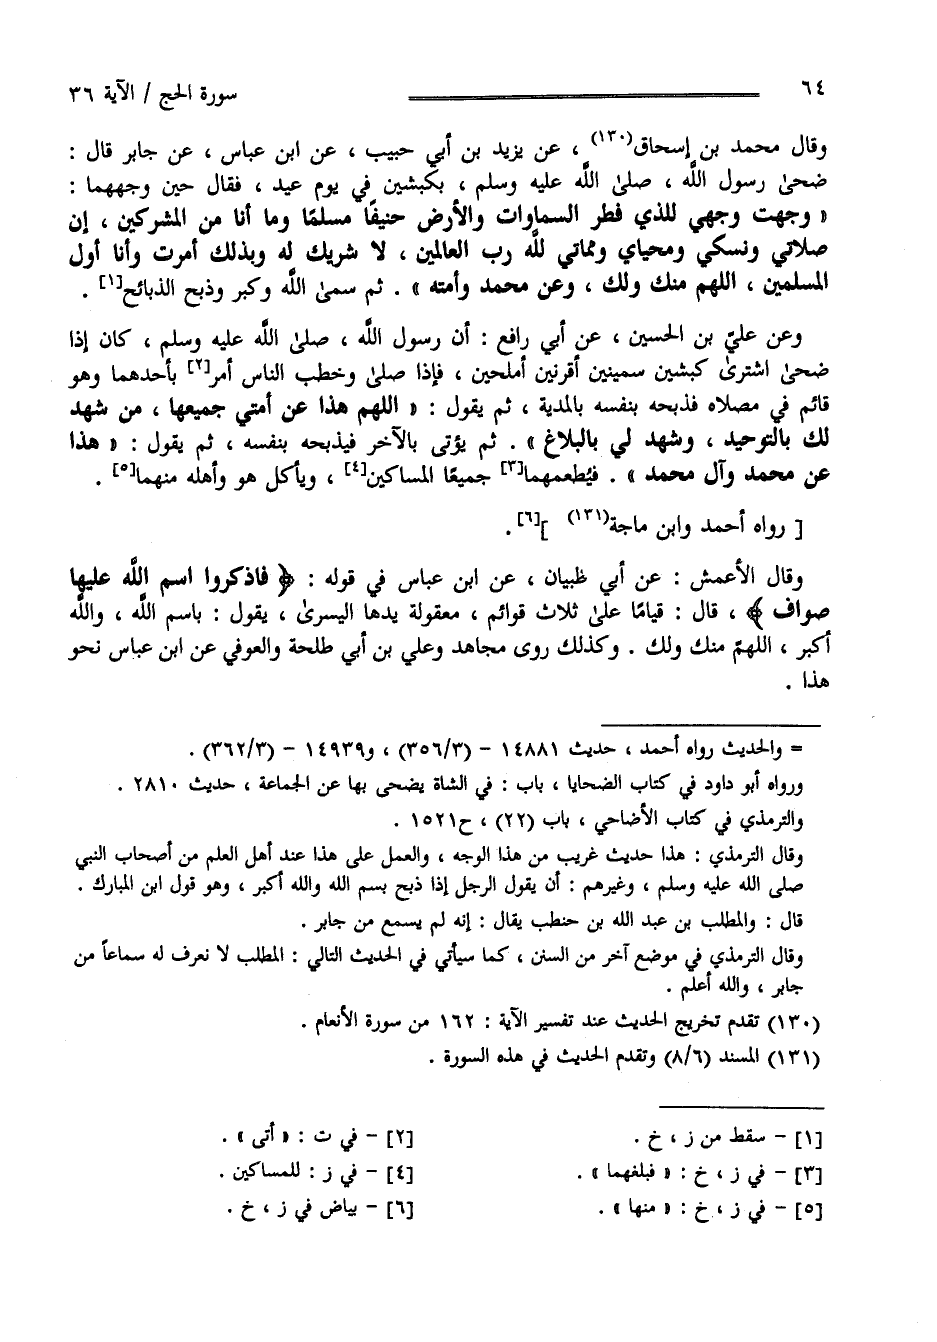 ٦٤ سورة الحج / الآية ٣٦
وقال محمد بن إسحاق(١٣٠) ، عن يزيد بن أبي حبيب ، عن ابن عباس ، عن جابر قال :
ضحىٰ رسول اللَّه ، صلىٰ اللَّه عليه وسلم ، بكبشين في يوم عيد ، فقال حين وجههما :
« وجهت وجهي للذي فطر السماوات والأرض حنيفًا مسلمًا وما أنا من المشركين ، إن
صلاتي ونسكي ومحياي ومماتي للَّه رب العالمين ، لا شريك له وبذلك أمرت وأنا أول
المسلمين ، اللهم منك ولك ، وعن محمد وأمته » . ثم سمىٰ اللَّه وكبر وذبح الذبائح[١] .
وعن عليّ بن الحسين ، عن أبي رافع : أن رسول اللَّه ، صلىٰ اللَّه عليه وسلم ، كان إذا
ضحىٰ اشترىٰ كبشين سمينين أقرنين أملحين ، فإذا صلىٰ وخطب الناس أمر[٢] بأحدهما وهو
قائم في مصلاه فذبحه بنفسه بالمدية ، ثم يقول : « اللهم هذا عن أمتي جميعها ، من شهد
لك بالتوحيد ، وشهد لي بالبلاغ » . ثم يؤتى بالآخر فيذبحه بنفسه ، ثم يقول : « هذا
عن محمد وآل محمد » . فيُطعمهما[٣] جميعًا المساكين[٤] ، ويأكل هو وأهله منهما[٥] .
[ رواه أحمد وابن ماجة(١٣١) ][٦].
وقال الأعمش : عن أبي ظبيان ، عن ابن عباس في قوله : ﴿ فاذكروا اسم اللَّه عليها
صواف ﴾ ، قال : قيامًا علىٰ ثلاث قوائم ، معقولة يدها اليسرىٰ ، يقول : باسم اللَّه ، واللَّه
أكبر ، اللهمّ منك ولك . وكذلك روى مجاهد وعلي بن أبي طلحة والعوفي عن ابن عباس نحو
هذا .
= والحديث رواه أحمد ، حديث ١٤٨٨١ – (٣٥٦/٣) ، و١٤٩٣٩ – (٣٦٢/٣) .
ورواه أبو داود في كتاب الضحايا ، باب : في الشاة يضحى بها عن الجماعة ، حديث ٢٨١٠ .
والترمذي في كتاب الأضاحي ، باب (٢٢) ، ح١٥٢١ .
وقال الترمذي : هذا حديث غريب من هذا الوجه ، والعمل على هذا عند أهل العلم من أصحاب النبي
صلى الله عليه وسلم ، وغيرهم : أن يقول الرجل إذا ذبح بسم الله والله أكبر ، وهو قول ابن المبارك .
قال : والمطلب بن عبد الله بن حنطب يقال : إنه لم يسمع من جابر .
وقال الترمذي في موضع آخر من السنن ، كما سيأتي في الحديث التالي : المطلب لا نعرف له سماعاً من
جابر ، والله أعلم .
(١٣٠) تقدم تخريج الحديث عند تفسير الآية : ١٦٢ من سورة الأنعام .
(١٣١) المسند (٨/٦) وتقدم الحديث في هذه السورة .
[١] – سقط من ز ، خ . [٢] – في ت : « أتى » .
[٣] – في ز ، خ : « فبلغهما » . [٤] – في ز : للمساكين .
[٥] – في ز ، خ : « منها » . [٦] – بياض في ز ، خ .